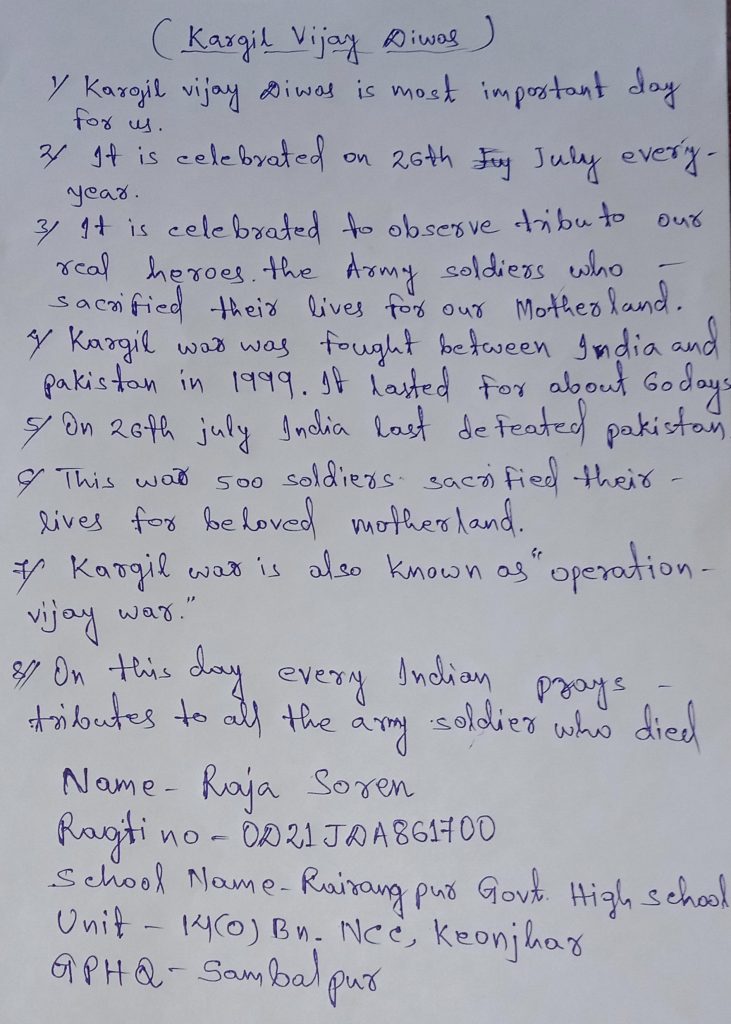 ( Kargil Vijay Diwas )
1/ Kargil vijay Diwas is most important day
for us.
2/ It is celebrated on 26th July every-
year.
3/ It is celebrated to observe tribu to our
real heroes. the Army soldiers who -
sacrified their lives for our Motherland.
4/ Kargil war was fought between India and
pakistan in 1999. It lasted for about 60 days
5/ On 26th july India last defeated pakistan
6/ This war 500 soldiers sacrified their -
lives for beloved motherland.
7/ Kargil war is also known as "operation-
vijay war."
8// On this day every Indian prays -
tributes to all the army soldier who died
Name - Raja Soren
Ragti no - OD21JDA861700
School Name - Rairangpur Govt. High school
Unit - 14(O) Bn. Ncc, Keonjhar
GPHQ - Sambalpur